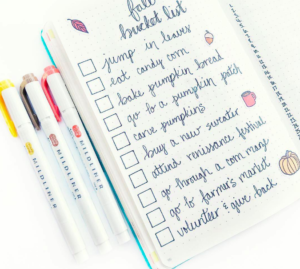 fall
bucket list
jump in leaves
eat candy corn
bake pumpkin bread
go to a pumpkin patch
carve pumpkins
buy a new sweater
attend renaissance festival
go through a corn maze
go to farmer's market
volunteer & give back
MILDLINER
MILDLINER
MILDLINER